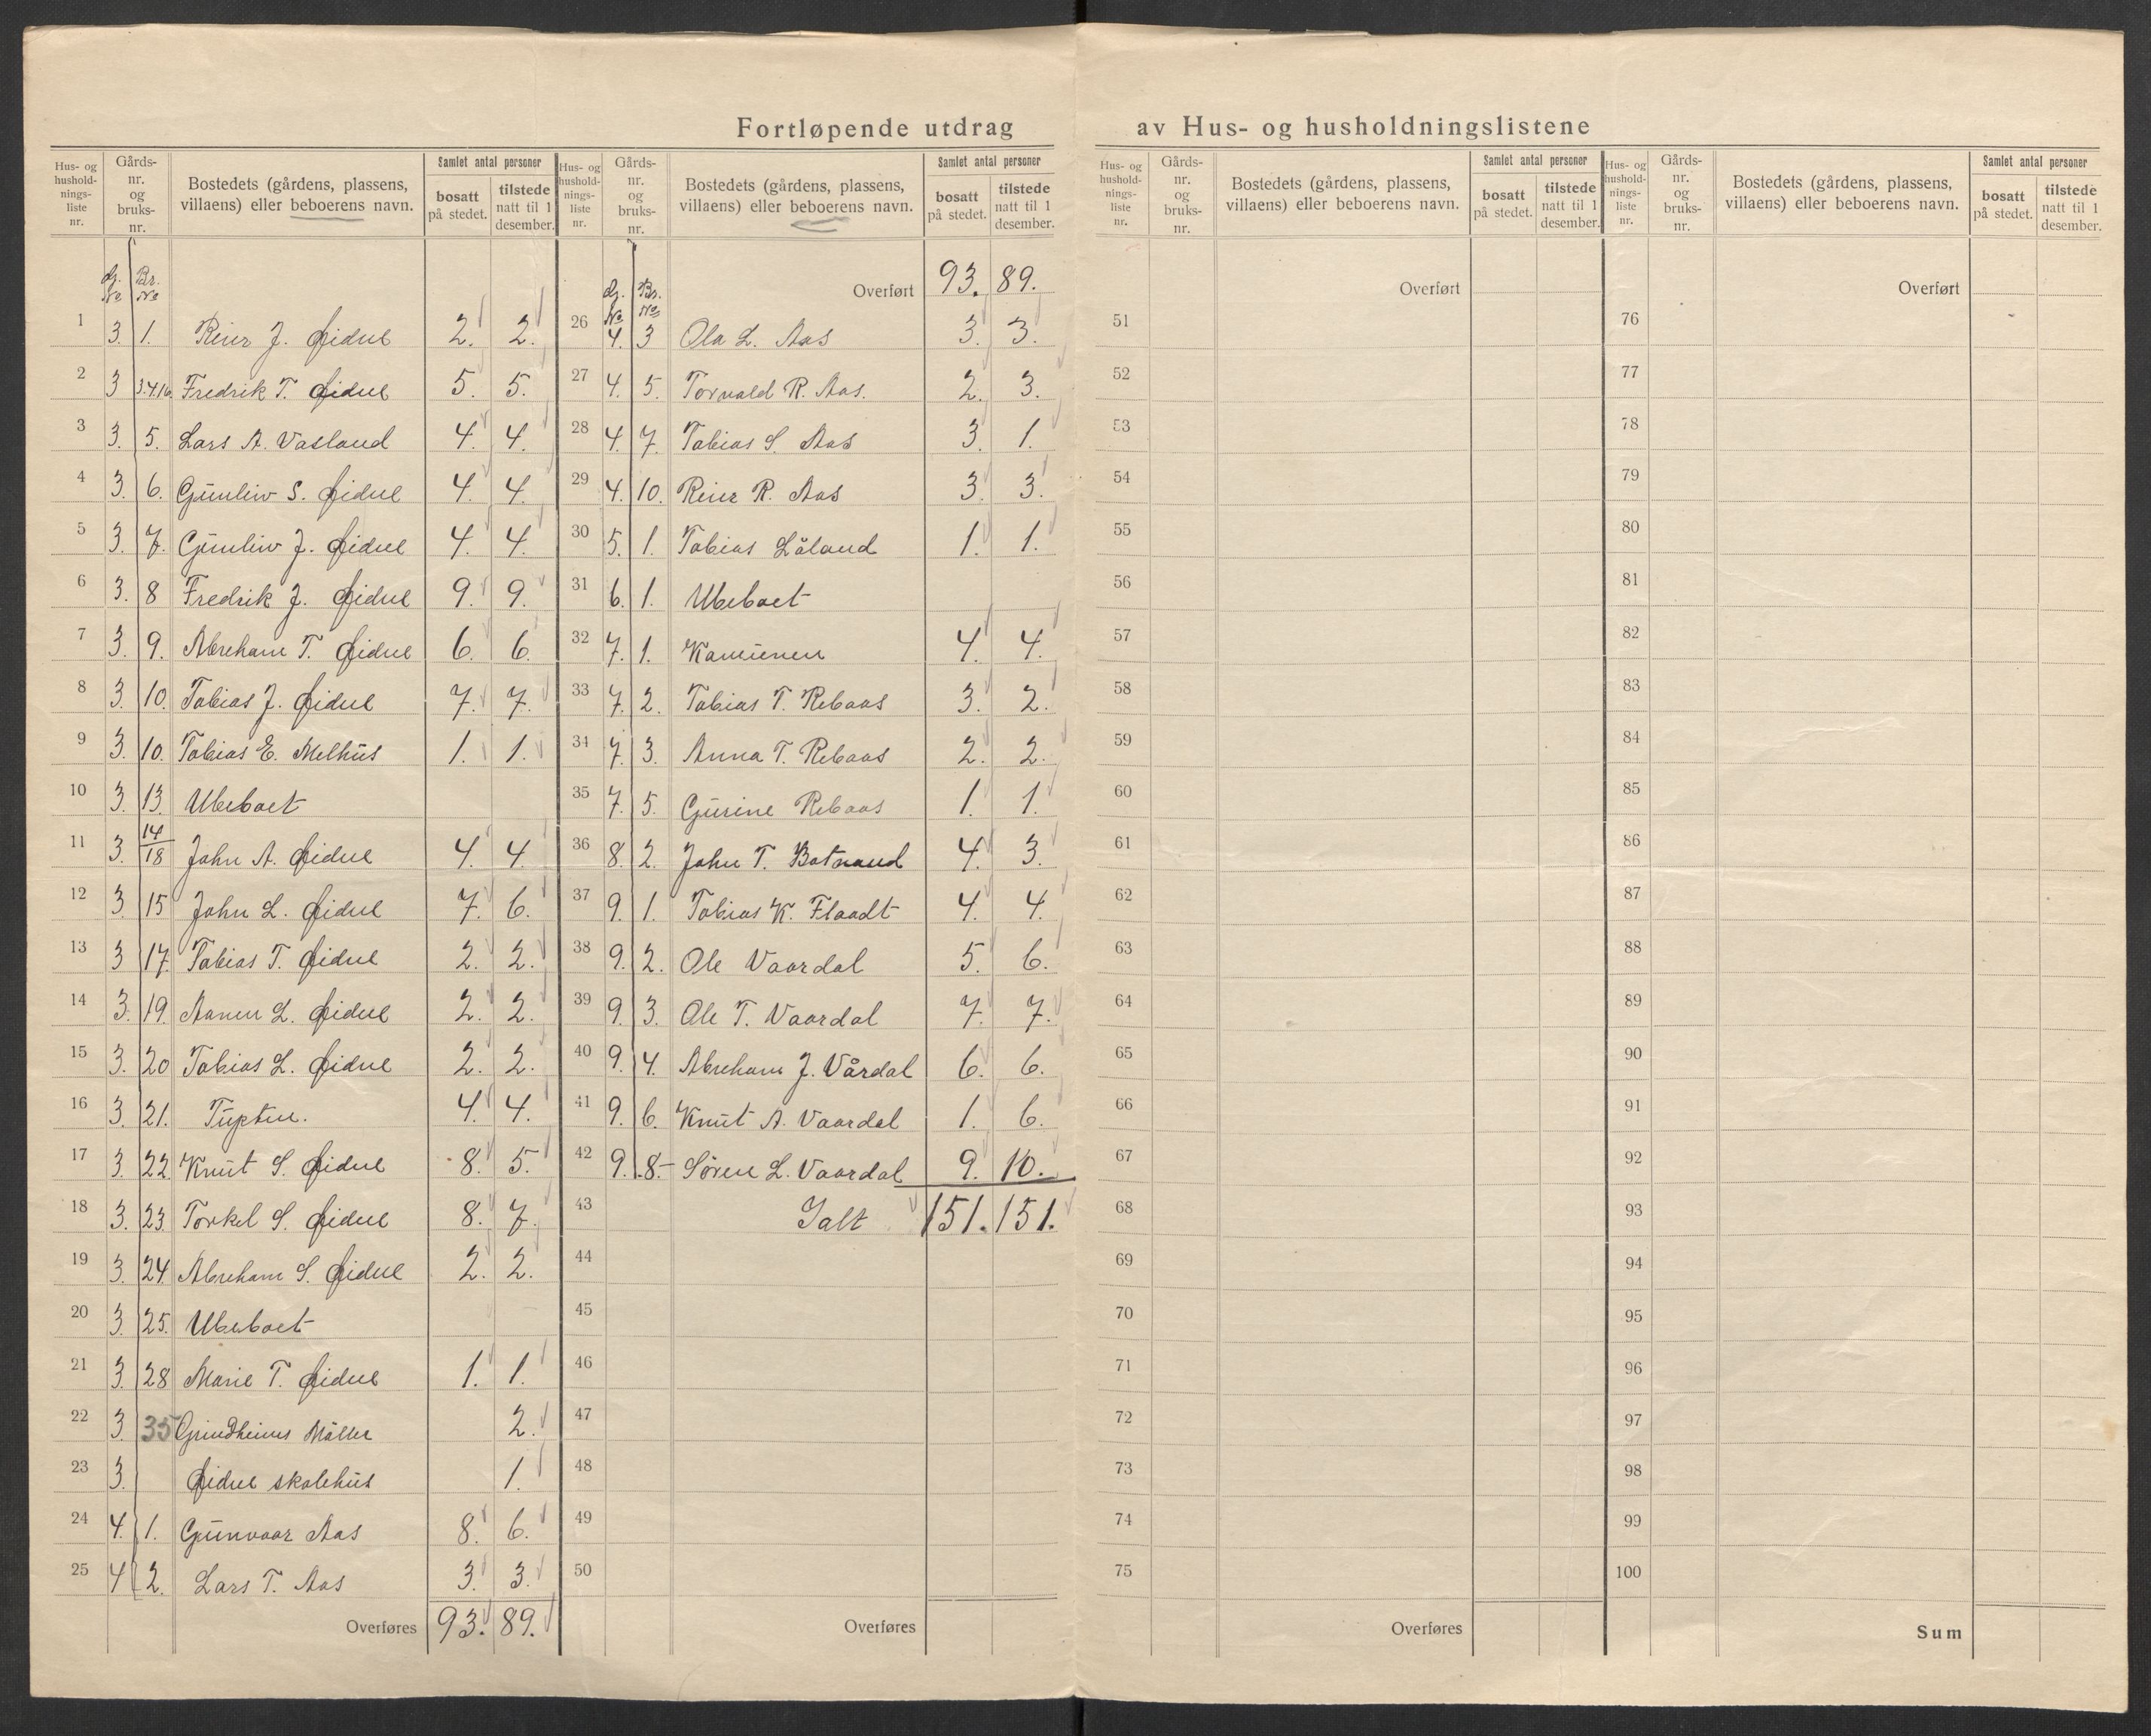 Fortløpende utdrag av Hus- og husholdningslistene
Hus- og hushold-nings-liste nr. Gårds-nr. og bruks-nr. Bostedets (gårdens, plassens, villaens) eller beboerens navn. Samlet antal personer bosatt på stedet. tilstede natt til 1 desember.
G. No Br. No
1 3. 1. Reier J. Øidne 2. 2.
2 3 3.4.16. Fredrik T. Øidne 5. 5.
3 3. 5. Lars A. Vasland 4. 4.
4 3. 6. Gunleiv S. Øidne 4. 4.
5 3. 7. Gunleiv J. Øidne 4. 4.
6 3. 8 Fredrik J. Øidne 9. 9.
7 3. 9. Abreham T. Øidne 6. 6.
8 3. 10. Tobias J. Øidne 7. 7.
9 3. 10. Tobias E. Melhus 1. 1.
10 3. 13. Ubeboet
11 3. 14/18 John A. Øidne 4. 4.
12 3. 15 John L. Øidne 7. 6.
13 3 17. Tobias T. Øidne 2. 2.
14 3. 19. Aanen L. Øidne 2. 2.
15 3. 20 Tobias L. Øidne 2. 2.
16 3. 21. Tupten. 4. 4.
17 3. 22. Knut S. Øidne 8. 5.
18 3. 23. Torkel S. Øidne 8. 7.
19 3. 24. Abreham S. Øidne 2. 2.
20 3. 25. Ubeboet
21 3. 28 Marie T. Øidne 1. 1.
22 3. 35 Grindheims Mølle 2.
23 3. Øidne skolehus 1.
24 4. 1. Gunvaar Aas 8. 6.
25 4 2. Lars T. Aas 3. 3.
Overføres 93. 89.
Hus- og hushold-nings-liste nr. Gårds-nr. og bruks-nr. Bostedets (gårdens, plassens, villaens) eller beboerens navn. Samlet antal personer bosatt på stedet. tilstede natt til 1 desember.
G. No Br. No
Overført 93. 89.
26 4. 3 Ola L. Aas 3. 3.
27 4. 5. Torvald R. Aas. 2. 3.
28 4. 7. Tobias S. Aas 3. 1.
29 4. 10. Reier R. Aas 3. 3.
30 5. 1. Tobias Låland 1. 1.
31 6. 1. Ubeboet
32 7. 1. 4. 4.
33 7. 2. Tobias T. Rebaas 3. 2.
34 7. 3. Anna T. Rebaas 2. 2.
35 7. 5. Gurine Rebaas 1. 1.
36 8. 2. John T. 4. 3.
37 9. 1. Tobias K. Flaadt 4. 4.
38 9. 2. Ole Vaardal 5. 6.
39 9. 3. Ole T. Vaardal 7. 7.
40 9. 4. Abreham J. Vårdal 6. 6.
41 9. 6. Knut A. Vaardal 1. 6.
42 9. 8 Søren L. Vaardal 9. 10.
43 Ialt 151. 151.
44
45
46
47
48
49
50
Overføres
Hus- og hushold-nings-liste nr. Gårds-nr. og bruks-nr. Bostedets (gårdens, plassens, villaens) eller beboerens navn. Samlet antal personer bosatt på stedet. tilstede natt til 1 desember.
Overført
51
52
53
54
55
56
57
58
59
60
61
62
63
64
65
66
67
68
69
70
71
72
73
74
75
Overføres
Hus- og hushold-nings-liste nr. Gårds-nr. og bruks-nr. Bostedets (gårdens, plassens, villaens) eller beboerens navn. Samlet antal personer bosatt på stedet. tilstede natt til 1 desember.
Overført
76
77
78
79
80
81
82
83
84
85
86
87
88
89
90
91
92
93
94
95
96
97
98
99
100
Sum